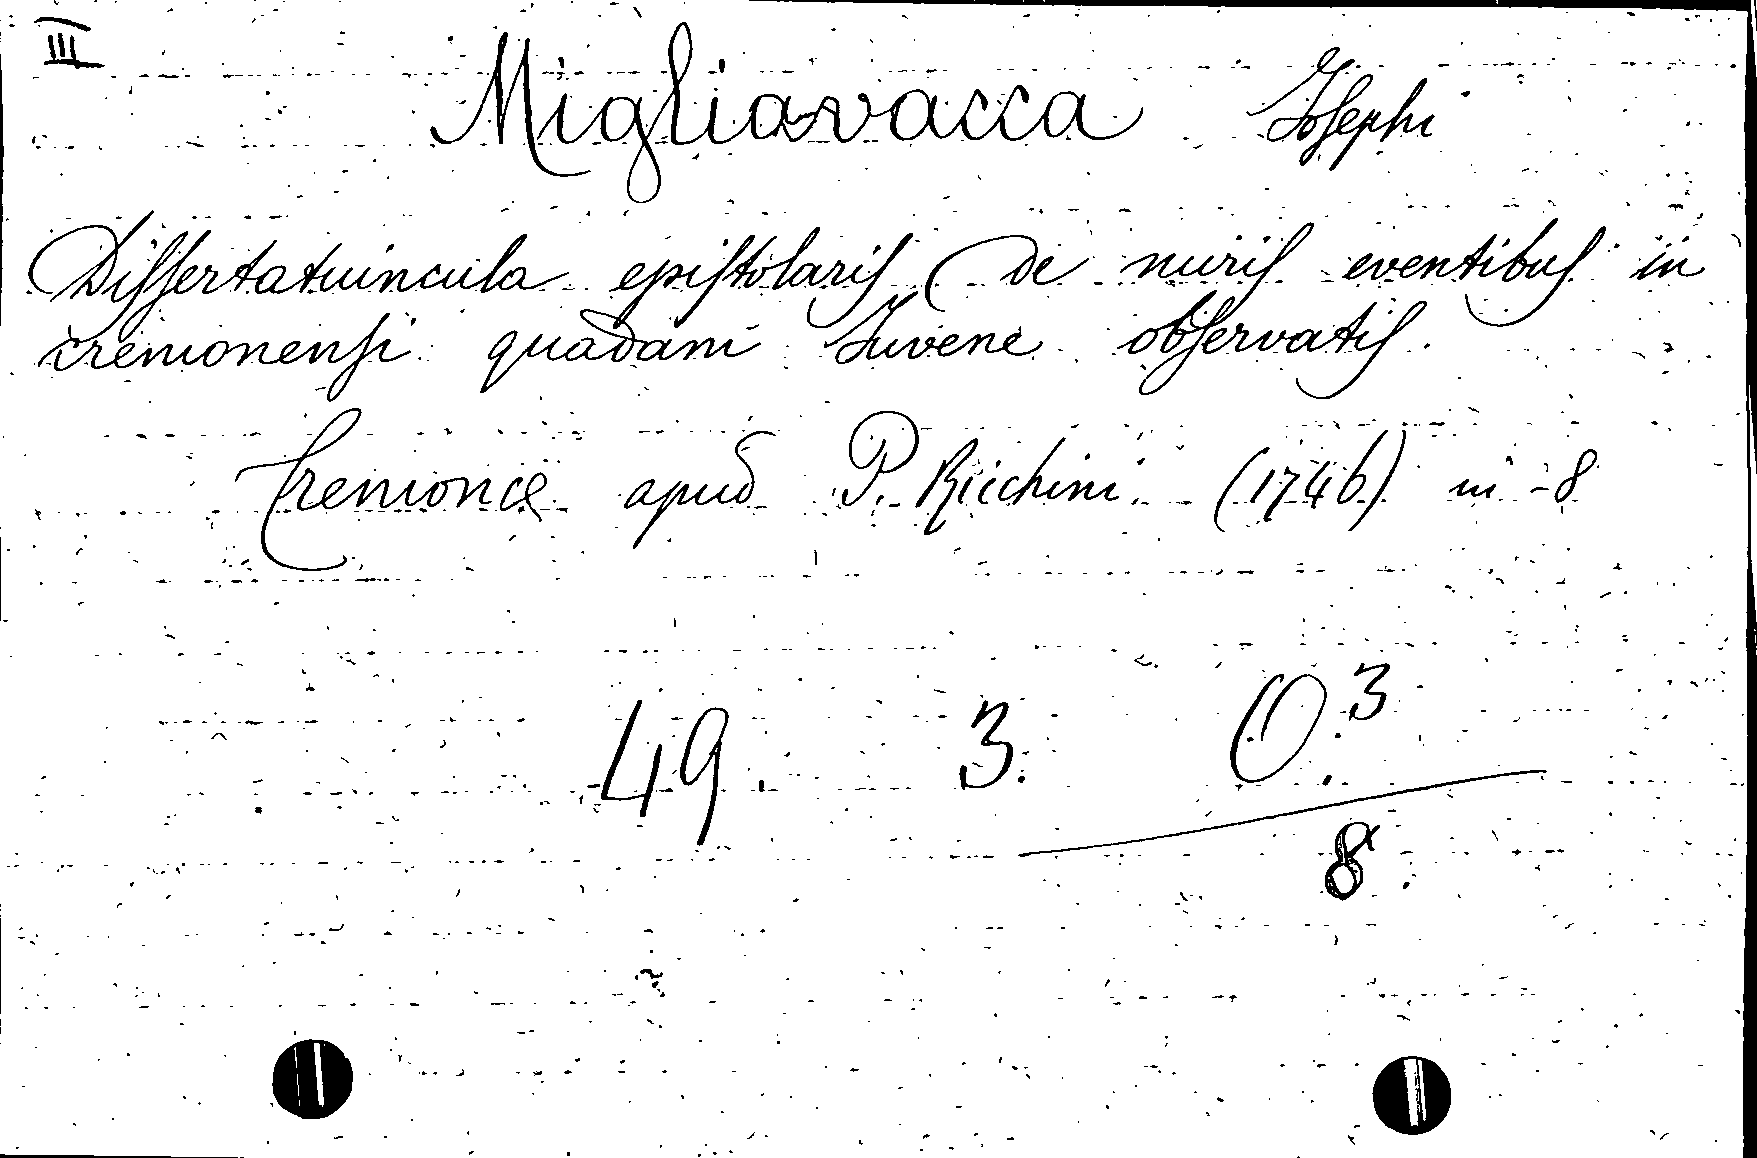 III
Migliavacca Josephi
Dissertatuincula epistolaris de miris eventibus in
cremonensi quadam Iuvene observatis.
Cremonæ apud P. Ricchini (1746) in-8
49. 3. O.3
8